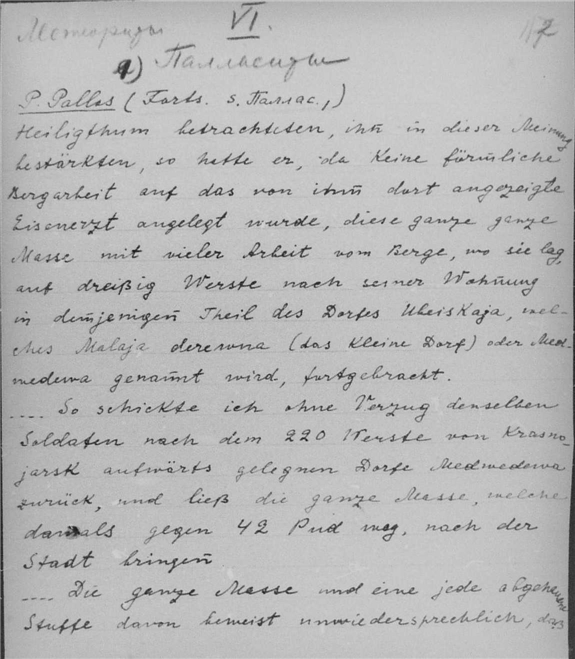 Метеориты VI.
а) Палласиты
P. Pallas (Forts. s. Паллас.,)
Heiligthum betrachteten, ihn in dieser Meinung
bestärkten, so hatte er, da keine förmliche
Bergarbeit auf das von ihm dort angezeigte
Eisenerzt angelegt wurde, diese ganze ganze
Masse mit vieler Arbeit vom Berge, wo sie lag,
auf dreißig Werste nach seiner Wohnung
in demjenigen Theil des Dorfes Ubeiskaja, wel-
ches Malaja derewna (das kleine Dorf) oder Med-
wedewa genannt wird, fortgebracht.
.... So schickte ich ohne Verzug denselben
Soldaten nach dem 220 Werste von Krasno-
jarsk aufwärts gelegnen Dorfe Medwedewa
zurück, und ließ die ganze Masse, welche
damals gegen 42 Pud wog, nach der
Stadt bringen
.... Die ganze Masse und eine jede abgehauene
Stuffe davon beweist unwiedersprechlich, daß